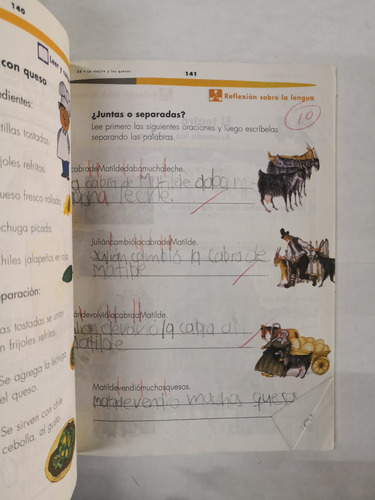 140
con queso
Leer y
edientes:
tillas tostadas.
joles refritos.
ueso fresco rallado.
chuga picada.
hiles jalapeños en raja
paración:
as tostadas se untan
n frijoles refritos.
Se agrega la lechuga
el queso.
Se sirven con chile
cebolla, al gusto.
22 • La viejita y los quesos
141
Reflexión sobre la lengua
10
¿Juntas o separadas?
Lee primero las siguientes oraciones y luego escríbelas
separando las palabras.
cabradeMatildedabamuchaleche.
cabra de Matilde daba
leche.
JuliáncambiólacabradeMatilde.
Julian cambió la cabra de
Matilde
ándevolviólacabradeMatilde.
lian devolvió la cabra de
Matilde
Matildevendiómuchosquesos.
Matilde vendio muchos queso